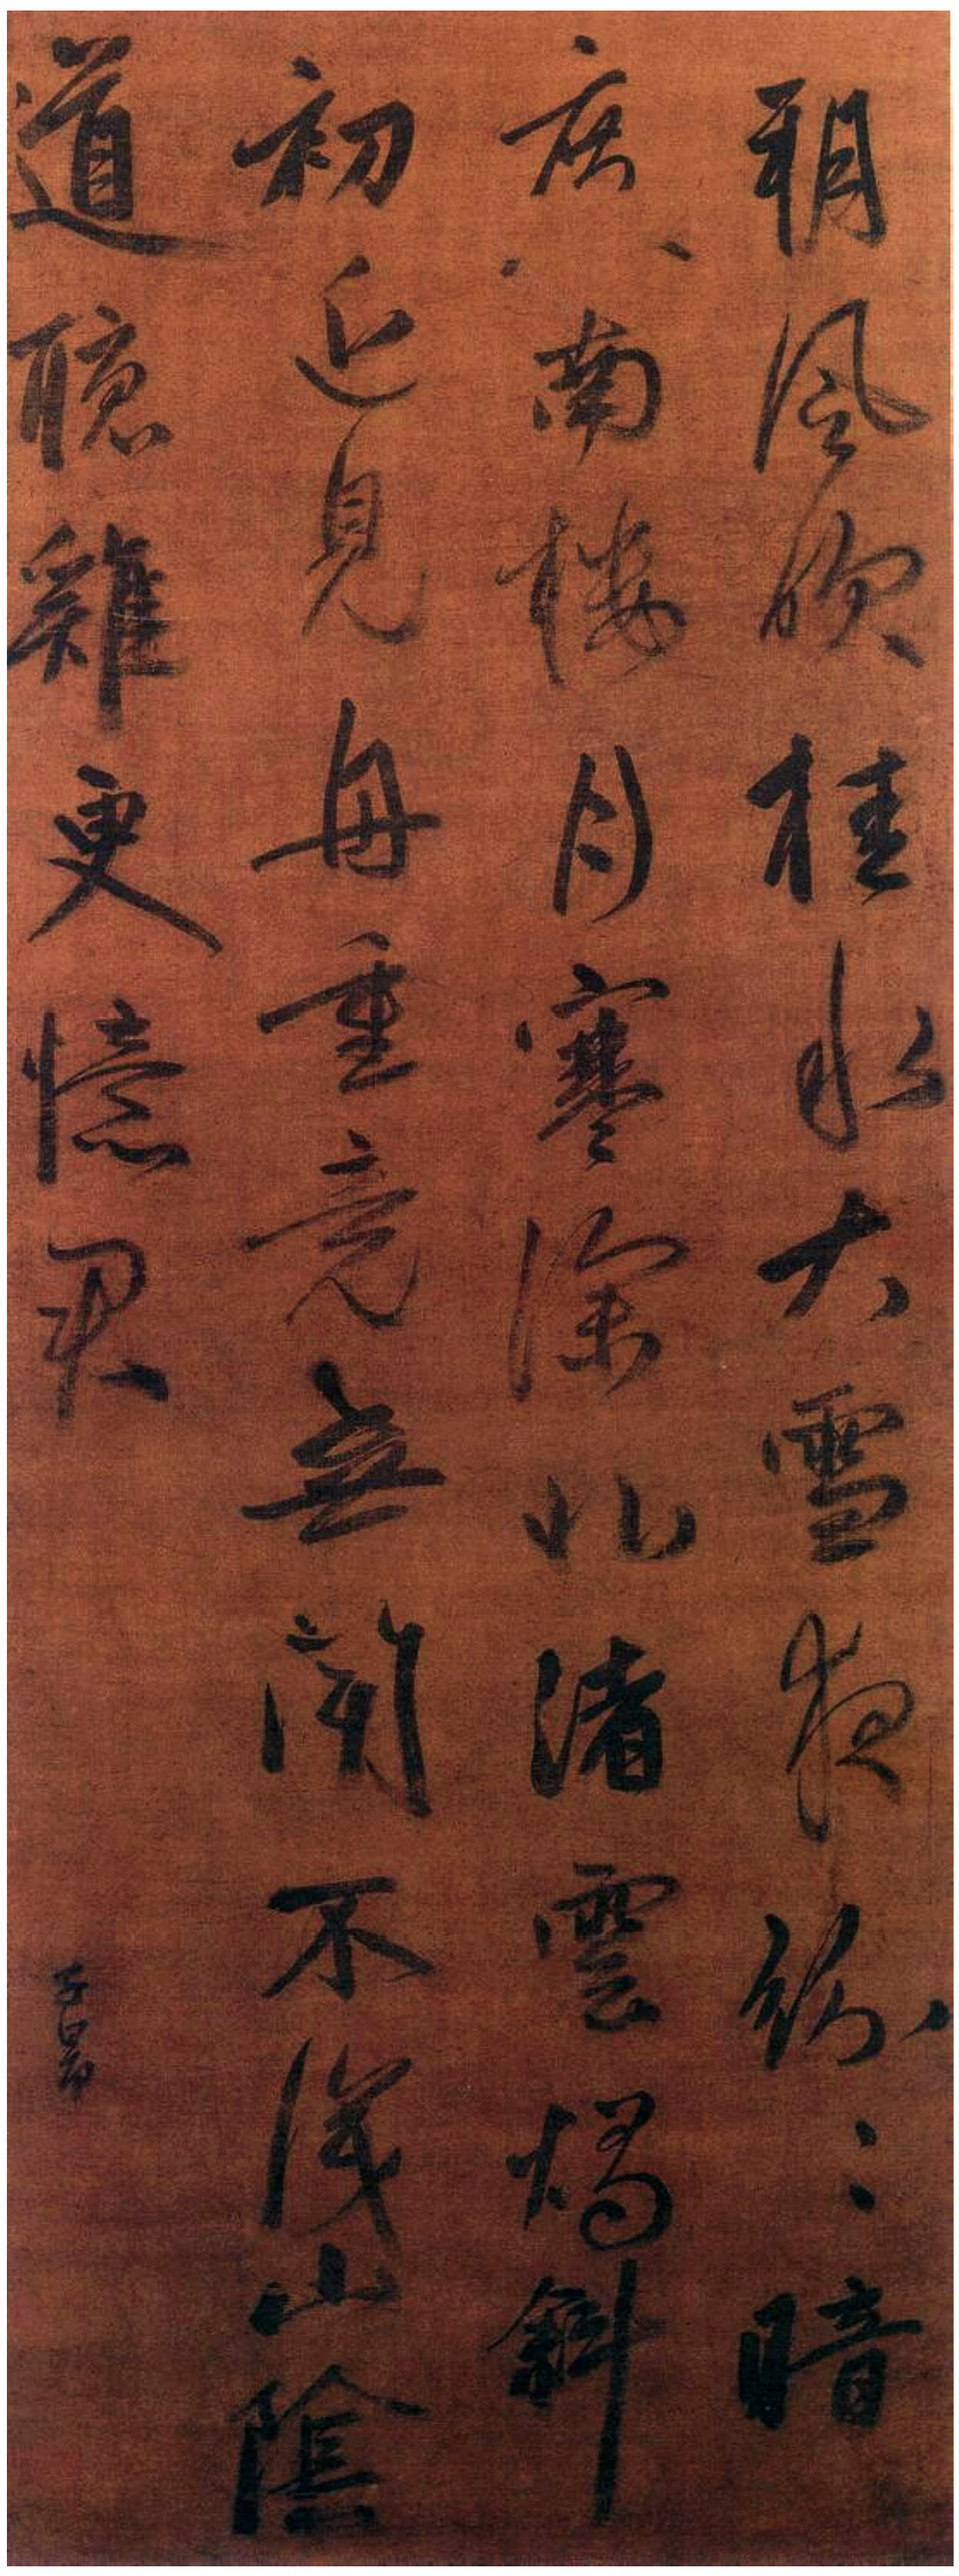 朔風吹桂水大雪夜紛〻暗
度南樓月寒深北渚雲燭斜
初近見舟重竟無聞不識山陰
道聽雞更憶君
子昂